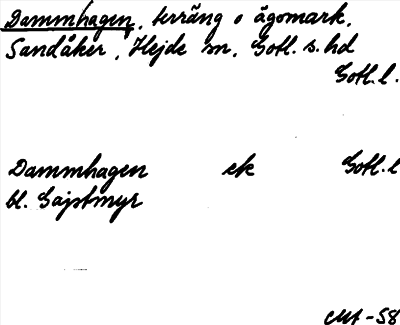 Dammhagen, terräng o ägomark,
Sandåker, Hejde sn, Gotl. s. hd
Gotl. l.
Dammhagen ek Gotl. l
bl. Gajstmyr
-58